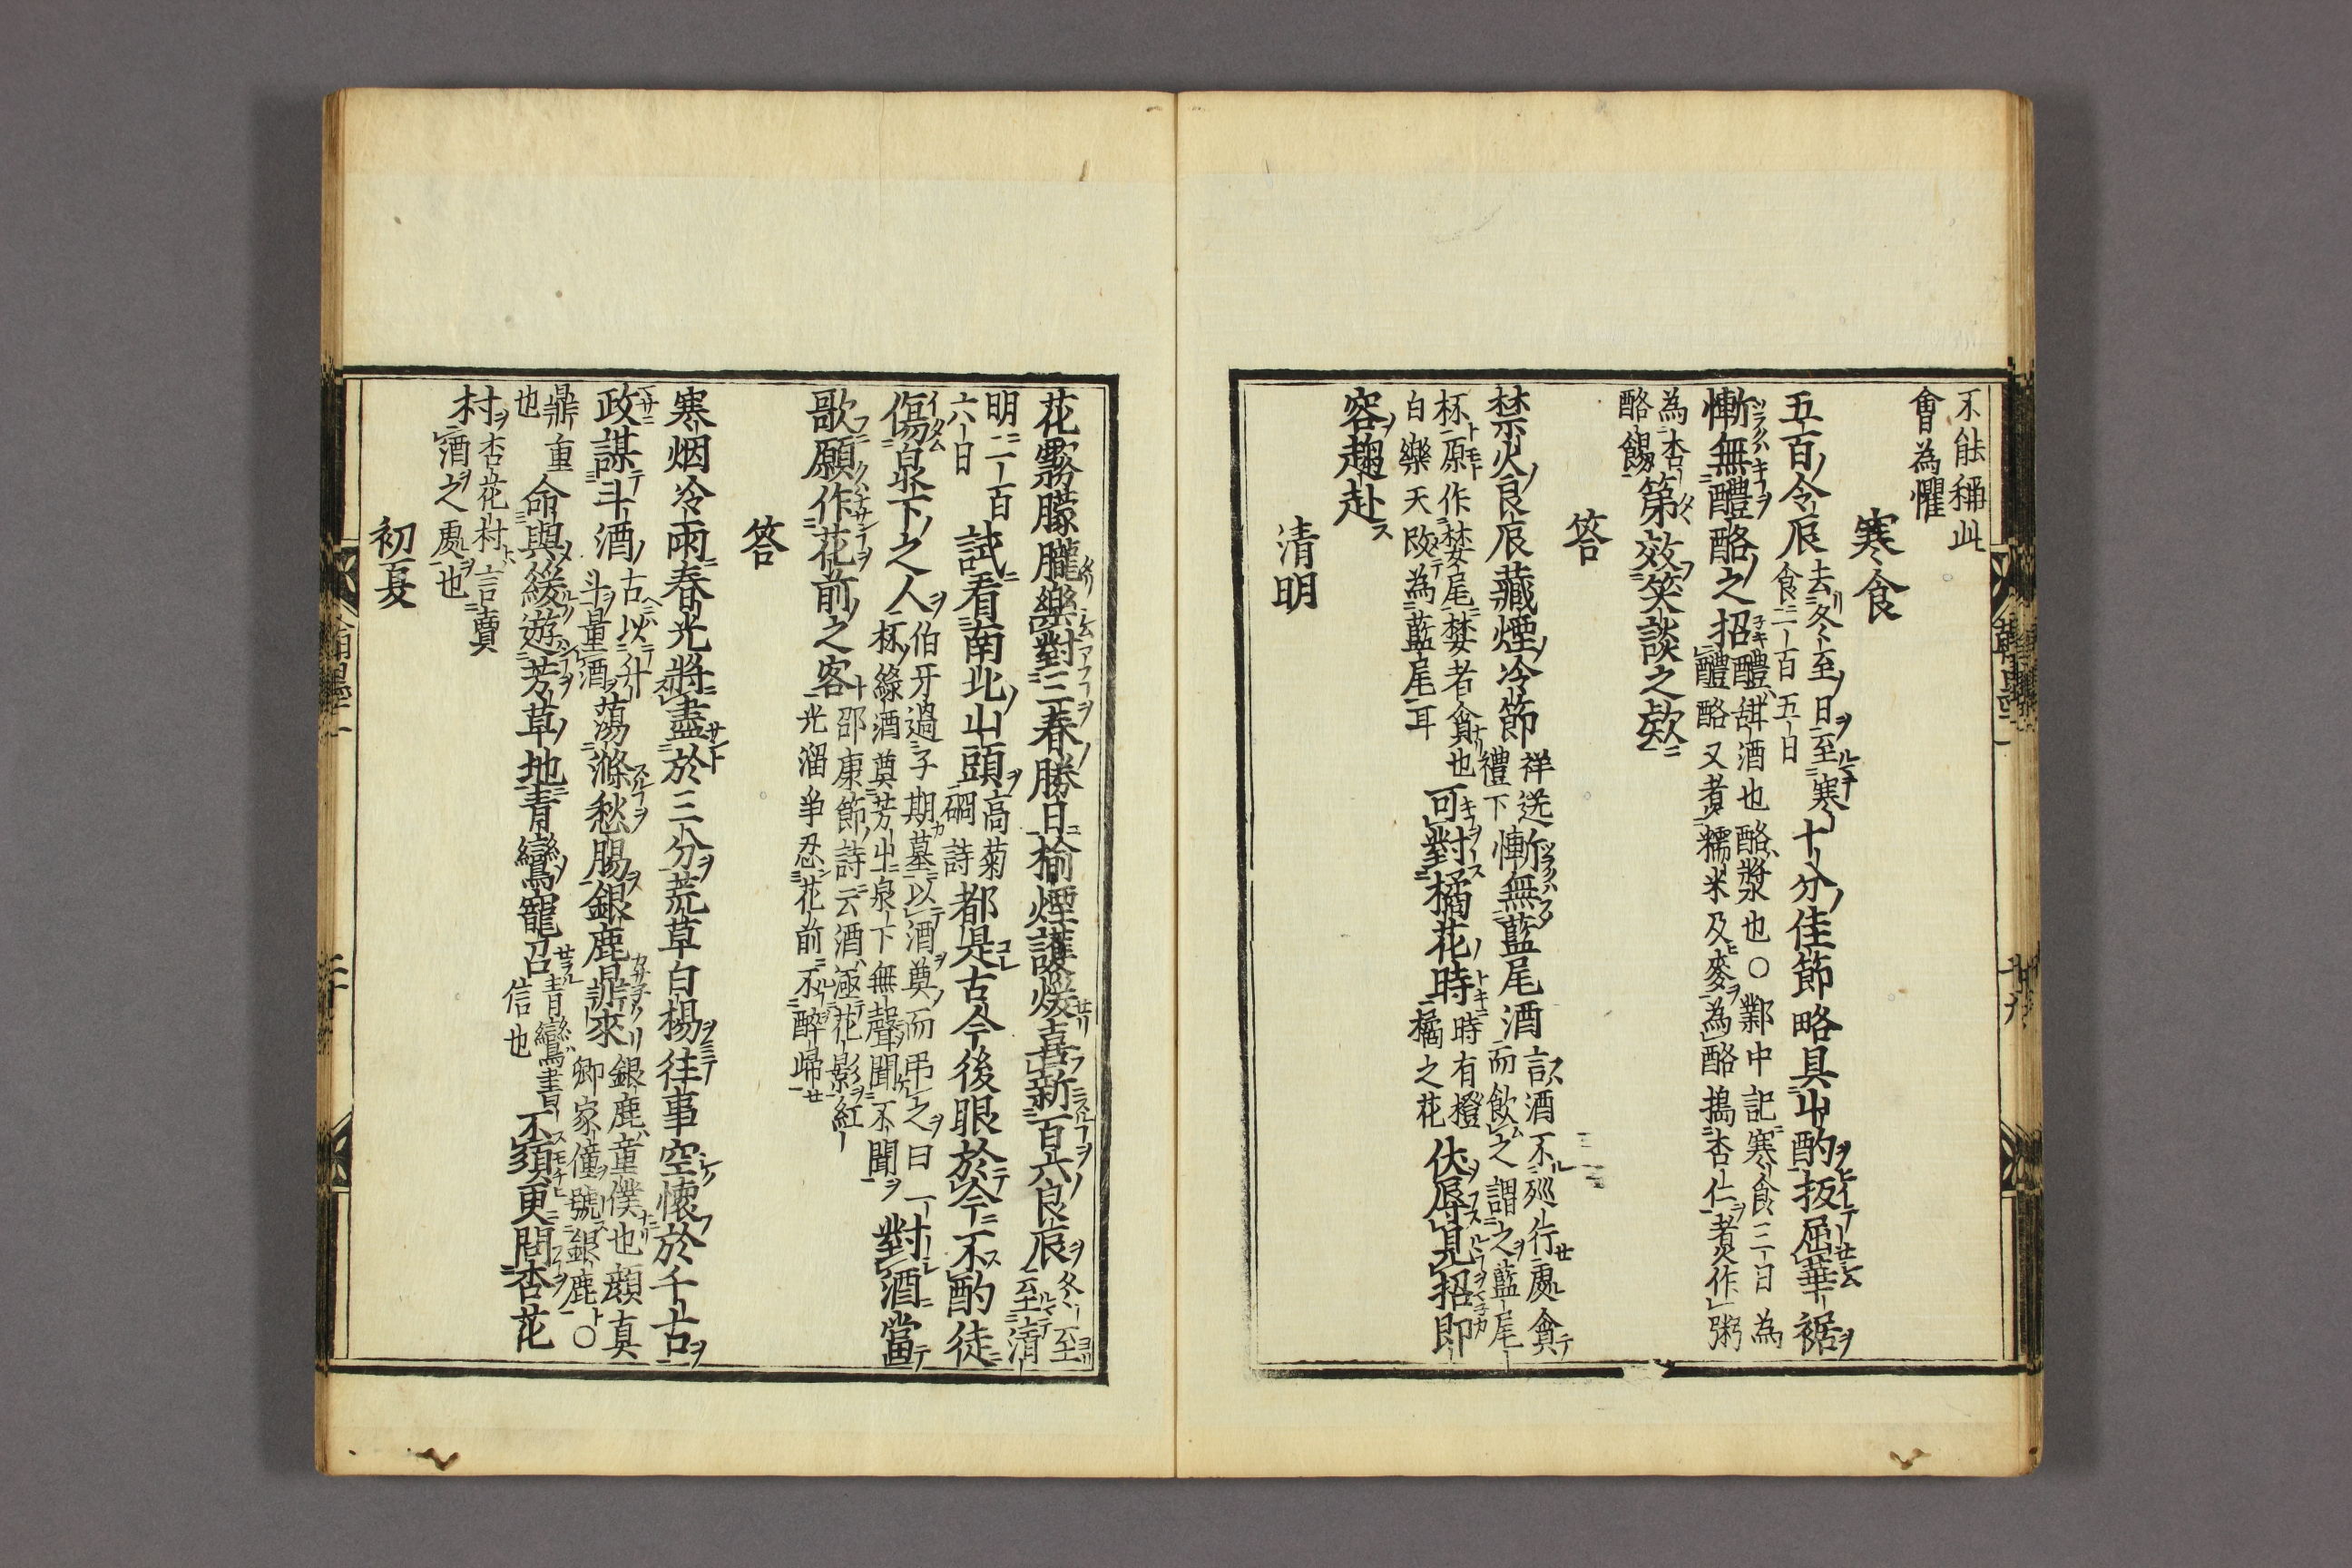 不能稱此
會為懼
寒食
五百令辰去冬至日至寒食一百五日十分佳節略具山酌扳屈華裾
慚無醴酪之招醴甜酒也酪漿也○鄴中記寒食三日為醴酪又煮糯米及麥為酪搗杏仁煮作粥
為杏酪餳第效笑談之欵
答
禁火良辰藏煙冷節祥送禮下慚無藍尾酒言酒不巡行處貪而飲之謂之藍尾
杯原作婪尾婪者貪也白樂天改為藍尾耳可對橘花時時有橙橘之花伏辱見招即
容趨赴
清明
花霧朦朧樂對三春勝日榆煙護煖喜新百六良辰冬至至清
明一百六日試看南北山頭高菊磵詩都是古今後眼於今不酌徒
傷泉下之人伯牙過子期墓以酒奠而弔之曰一杯綠酒奠芳山泉下無聲聞不聞對酒當
歌願作花前之客邵康節詩云酒涵花影紅光溜爭忍花前不醉歸
答
寒烟冷雨春光將盡於三分荒草白楊往事空懷於千古
政謀斗酒古以升斗量酒蕩滌愁腸銀鹿鼎來銀鹿童僕也顔真卿家僮號銀鹿○
鼎重也命與緩遊芳草地青鸞寵召青鸞書信也不須更問杏花
村杏花村言賣酒之處也
初夏